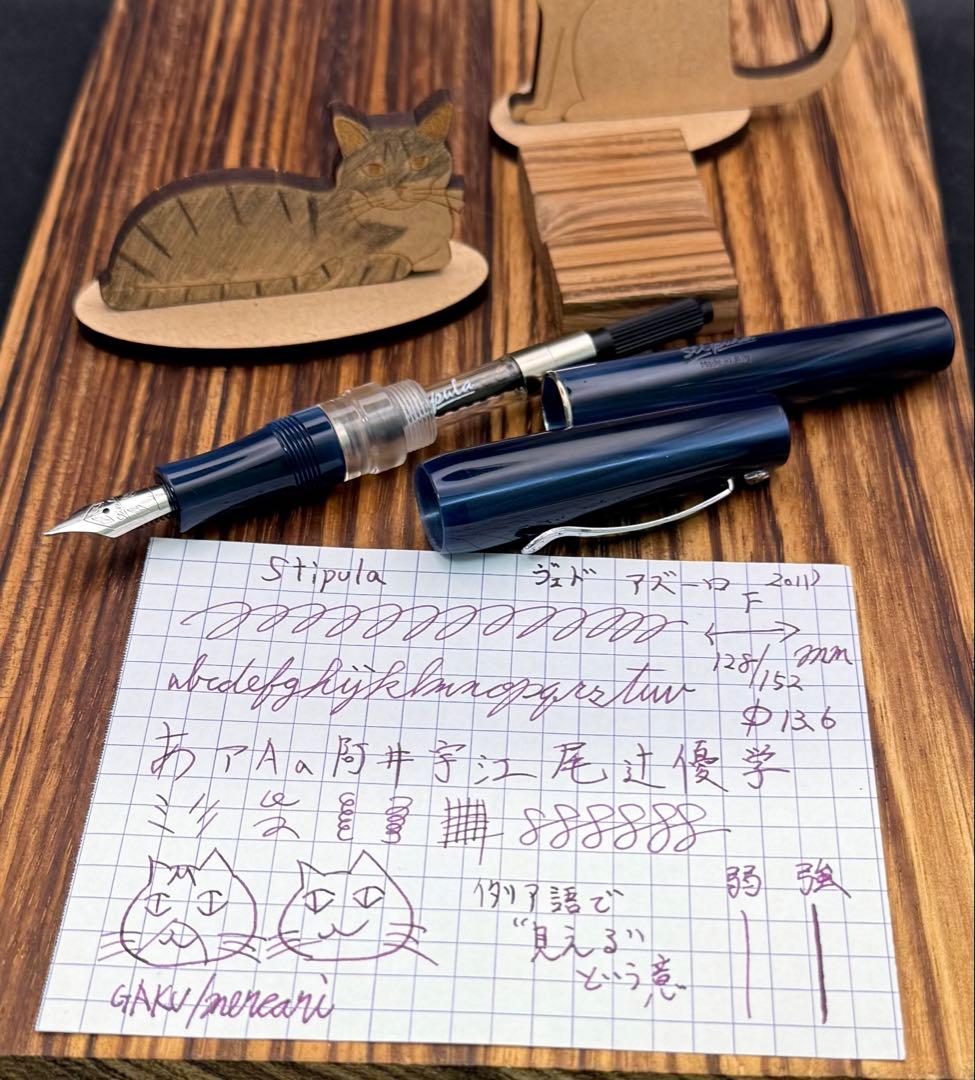 stipula
Made in Italy
stipula
Stipula ヴェド アズーロ 2011
F
128/152 mm
abcdefghijklmnopqrstuv
φ13.6
あアAa阿井宇江尾辻優学
888888
弱 強
伊タリア語で
"見える"
という意
GAKU/mercari